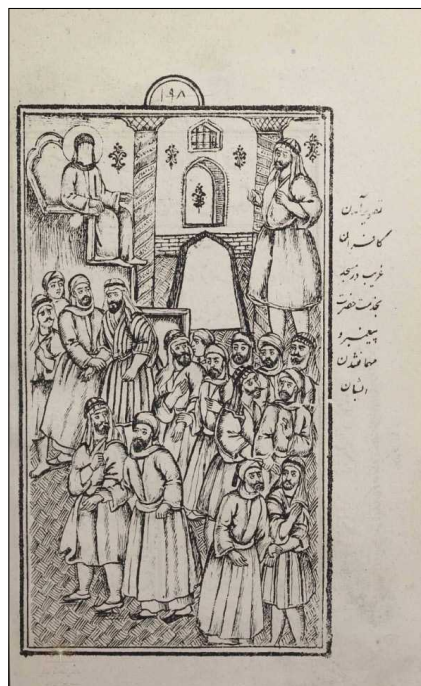 ۱۹۸
تصویر آمدن
کافران
غریب در مسجد
بخدمت حضرت
پیغمبر و
مهمانشدن
ایشان